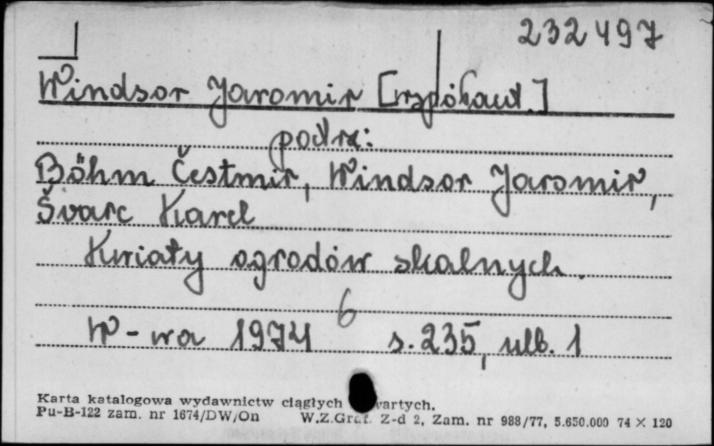 232497
Windsor Jaromir [współaut.]
podrz:
Böhm Čestmir, Windsor Jaromir,
Švarc Karel
Kwiaty ogrodów skalnych.
6
W-wa 1974 s. 235, nlb. 1
Karta katalogowa wydawnictw ciągłych wartych.
Pu-B-122 zam. nr 1674/DW/On W.Z.Graf. Z-d 2, Zam. nr 988/77, 5.650.000 74 × 120